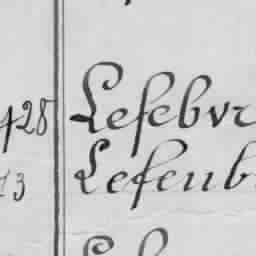 428 Lefebvr
13 Lefeub